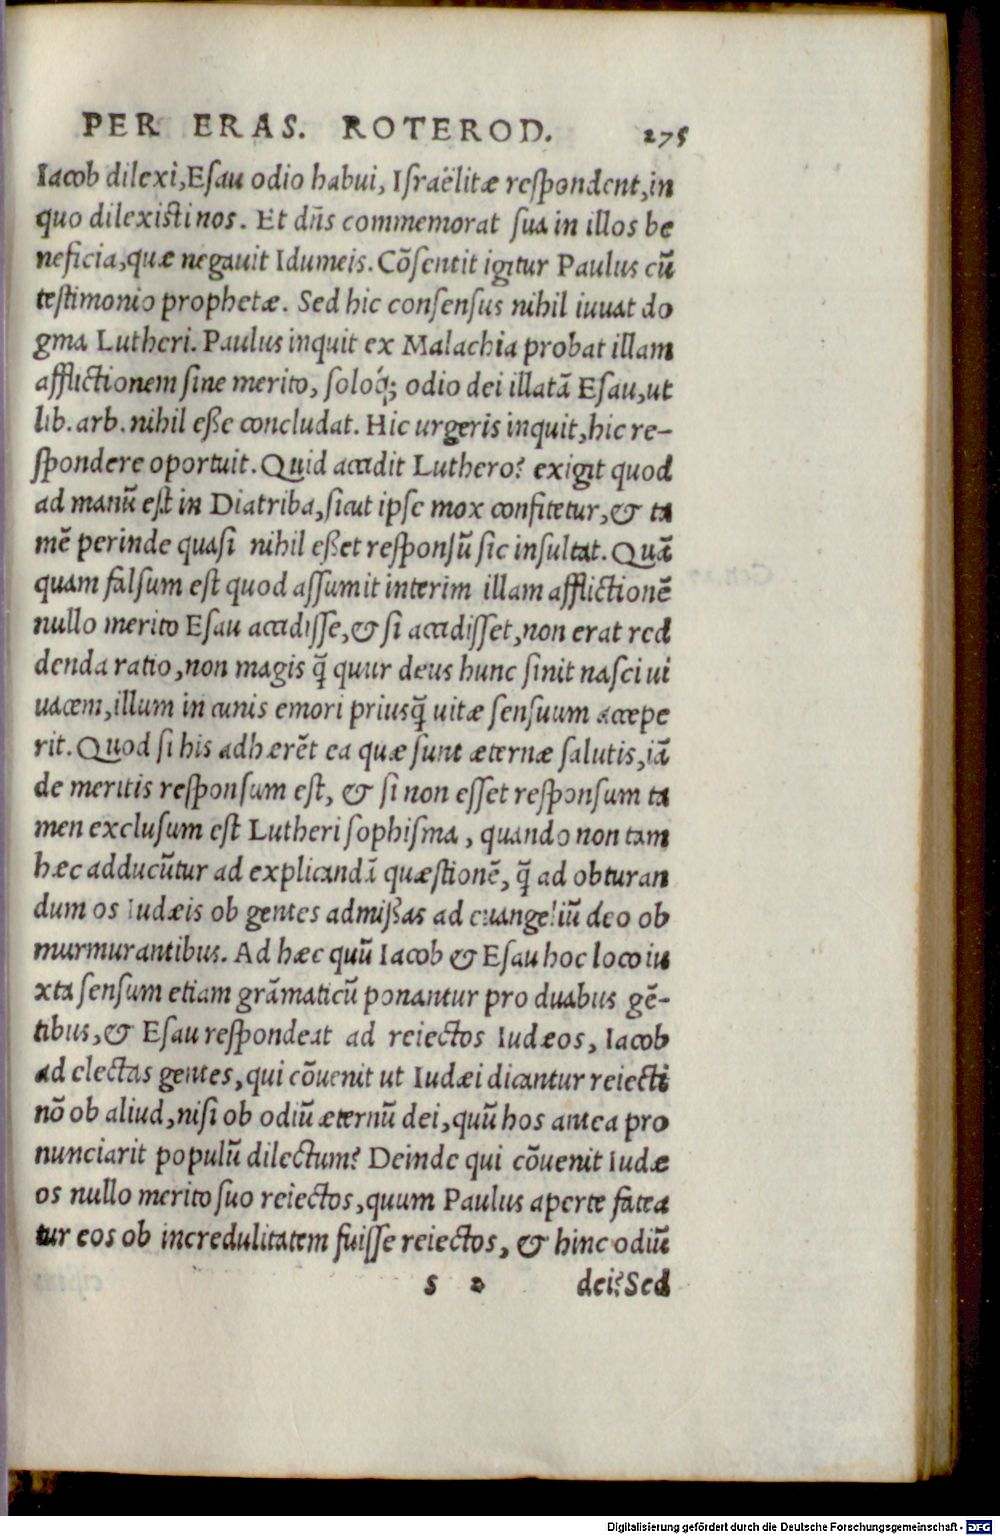 PER ERAS. ROTEROD. 275
Iacob dilexi, Esau odio habui, Israëlitæ respondent, in
quo dilexisti nos. Et dn̄s commemorat sua in illos be
neficia, quæ negauit Idumeis. Cōsentit igitur Paulus cū
testimonio prophetæ. Sed hic consensus nihil iuuat do
gma Lutheri. Paulus inquit ex Malachia probat illam
afflictionem sine merito, soloq́; odio dei illatā Esau, ut
lib. arb. nihil eße concludat. Hic urgeris inquit, hic re-
spondere oportuit. Quid accidit Luthero? exigit quod
ad manū est in Diatriba, sicut ipse mox confitetur, & ta
mē perinde quasi nihil eßet responsū sic insultat. Quā
quam falsum est quod assumit interim illam afflictionē
nullo merito Esau accidisse, & si accidisset, non erat red
denda ratio, non magis q̄ quur deus hunc sinit nasci ui
uacem, illum in cunis emori priusq̄ uitæ sensuum acceepe
rit. Quod si his adhærēt ea quæ sunt æternæ salutis, iā
de meritis responsum est, & si non esset responsum ta
men exclusum est Lutheri sophisma, quando non tam
hæc adducūtur ad explicandā quæstionē, q̄ ad obturan
dum os Iudæis ob gentes admißas ad euangeliū deo ob
murmurantibus. Ad hæc quū Iacob & Esau hoc loco iu
xta sensum etiam grāmaticū ponantur pro duabus gē-
tibus, & Esau respondeat ad reiectos Iudæos, Iacob
ad electas gentes, qui cōuenit ut Iudæi dicantur reiecti
nō ob aliud, nisi ob odiū æternū dei, quū hos antea pro
nunciarit populū dilectum? Deinde qui cōuenit Iudæ
os nullo merito suo reiectos, quum Paulus aperte fatea
tur eos ob incredulitatem fuisse reiectos, & hinc odiū
s 2 dei? Sed
Digitalisierung gefördert durch die Deutsche Forschungsgemeinschaft - DFG